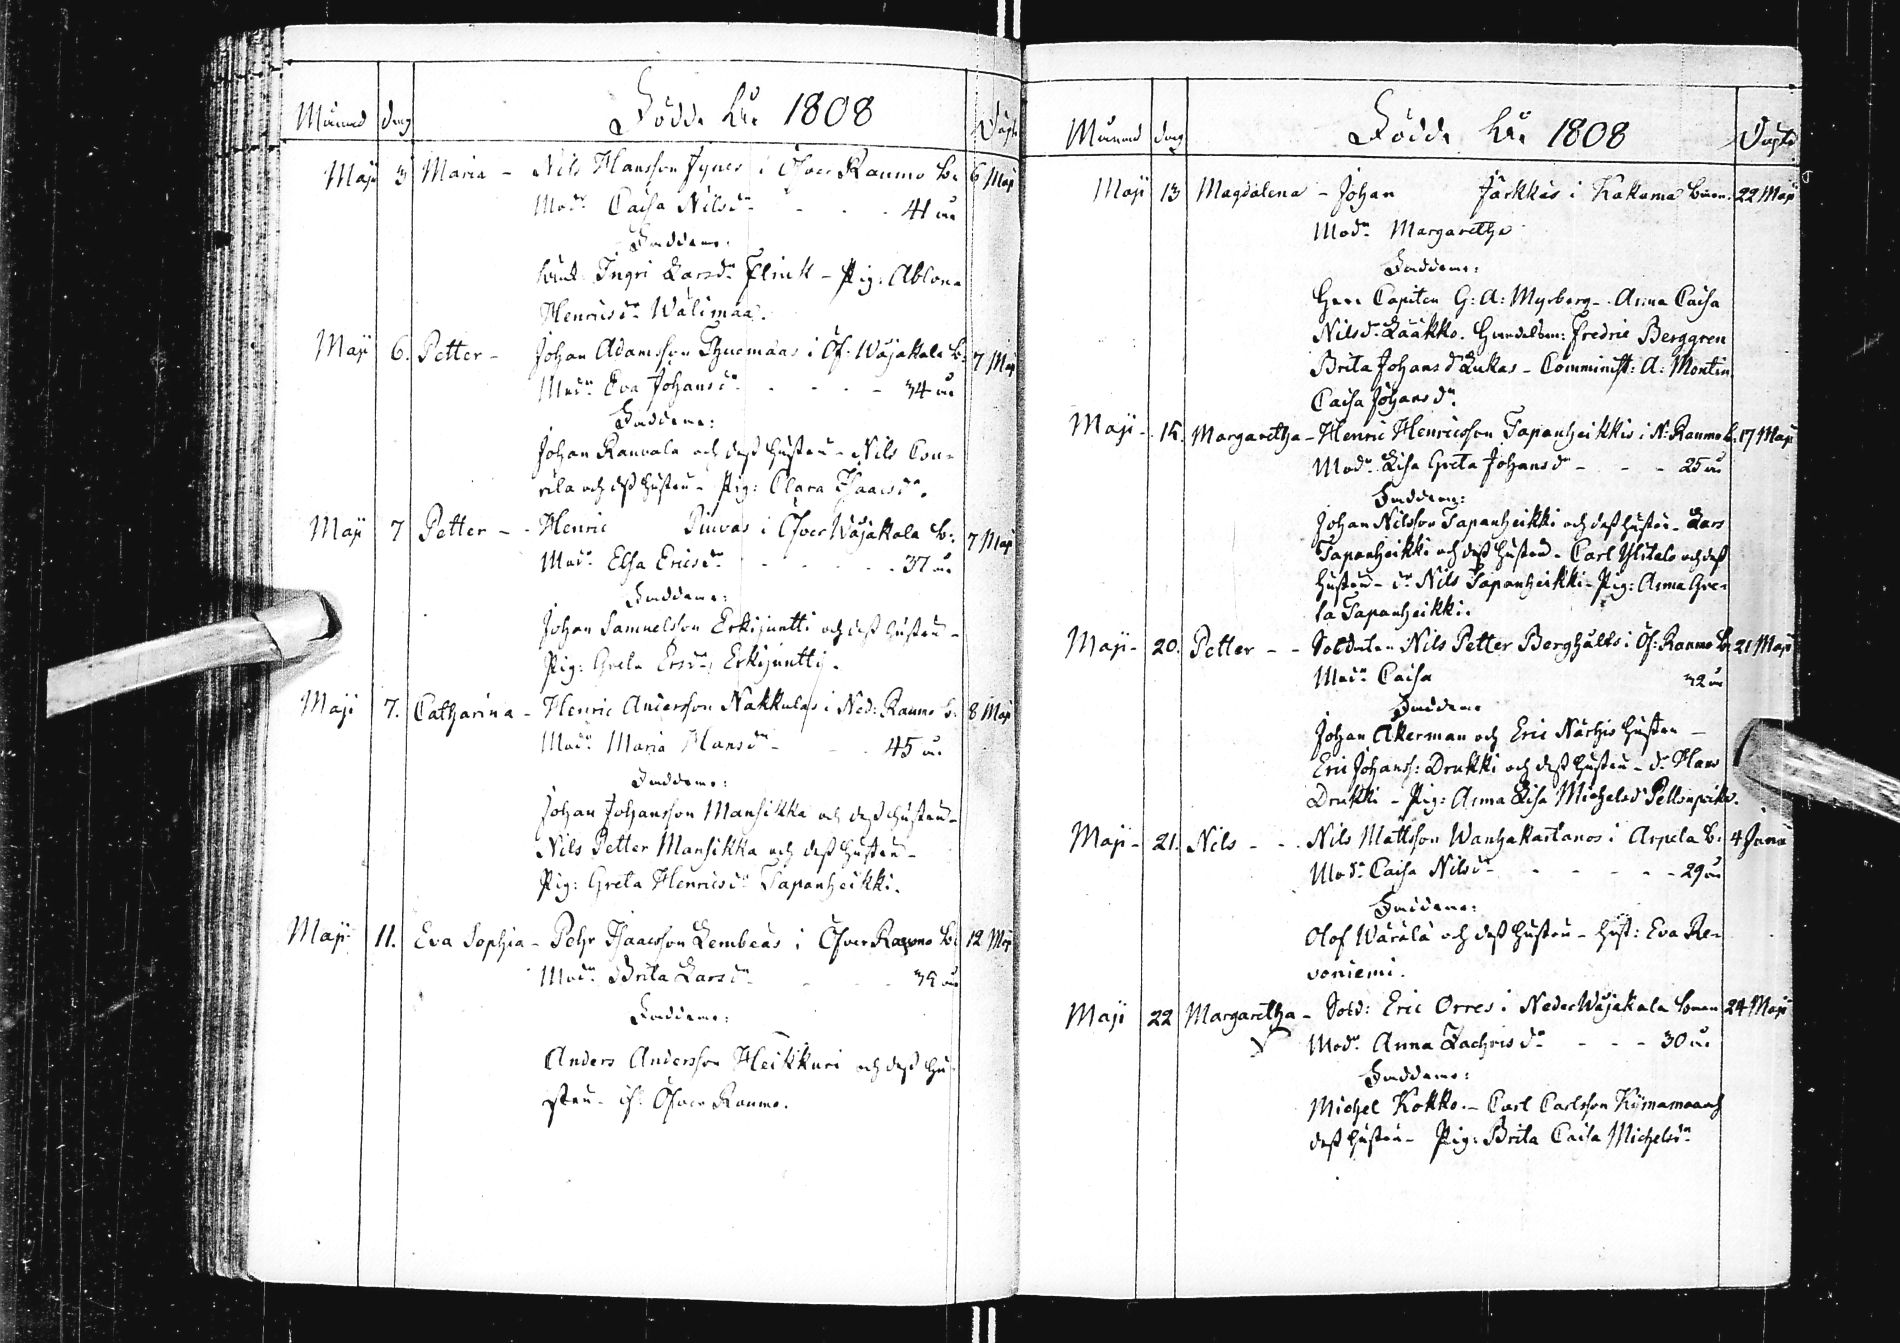 Månad dag Födde åhr 1808 Döpte
Maji 3 Maria - Nils Hansson Jynes i Öfver Raumo b: 6 Maji
Mod:n Caisa Nilsd:r - - - 41 år
Faddrar:
Ingri Larsd:r Flink - Pig: Ablona
Henricsd:r Wälimaa.
Maji 6. Petter - Johan Adamsson i Öf: Wojakala b: 7 Maji
Mod:n Eva Johansd:r - - - - 34 år
Faddrar:
Johan Rauvala och dess hustru - Nils Con-
rila och dess hustru - Pig: Clara Isaacsd:r.
Maji 7 Petter - - Henric Piuvas i Öfver Wojakala b: 7 Maji
Mod:n Elsa Ericsd:r - - - - - 37 år
Faddrar:
Johan Samuelsson Erkijuntti och dess hustru -
Pig: Greta Ersd:r Erkijuntti.
Maji 7. Catharina - Henric Andersson Nakkulas i Ned: Raumo b: 8 Maji
Mod:n Maria Hansd:r - - - 45 år
Faddrar:
Johan Johansson Mansikka och dess hustru -
Nils Petter Mansikka och dess hustru -
Pig: Greta Henricsd:r Tapanheikki.
Maji 11. Eva Sophia - Pehr Isaacsson Lembeas i Öfver Raumo b: 12 Maji
Mod:n Brita Larsd:r - - - 35 år
Faddrar:
Anders Andersson Heikkuri och dess hu-
stru - Öfver Raumo.
Månad dag Födde åhr 1808 Döpte
Maji 13 Magdalena - Johan Järkkäs i Kakama byen. 22 Maji
Mod:n Margaretha
Faddrar:
Herr Capiten G: A: Myrberg - Anna Caisa
Nilsd:r Lääkko. Handelsm: Fredric Berggren
Brita Johansd:r Lukas - Comminist: A: Montin
Caisa Johansd:r.
Maji - 15. Margaretha - Henric Henricsson Tapanheikkis i N: Raumo b. 17 Maji
Mod:n Lisa Greta Johansd:r - - - 25 år
Faddrar:
Johan Nilsson Tapanheikki och dess hustru - Lars
Tapanheikki och dess hustru - Carl Ylitalo och dess
hustru - d:r Nils Tapanheikki - Pig: Anna Gre-
ta Tapanheikki.
Maji - 20. Petter - - Soldaten Nils Petter Berghults i Öf: Raumo b: 21 Maji
Mod:n Caisa 32 år
Faddrar
Johan Åkerman och Eric Närhis hustru -
Eric Johanss: Drukki och dess hustru - d:r Hans
Drukki - Pig: Anna Lisa Michelsd:r
Maji - 21. Nils - - Nils Mattsson Wanhakartanos i Arpela b: 4 Junii
Mod:n Caisa Nilsd:r - - - - - 29 år
Faddrar:
Olof Wärälä och dess hustru - hust: Eva Re-
voniemi.
Maji 22 Margaretha - Sold: Eric Orres i Neder Wojakala byen 24 Maji
Mod:n Anna Zachrisd:r - - - 30 år
Faddrar:
Michel Kokko. - Carl Carlsson och
dess hustru - Pig: Brita Caisa Michelsd:r